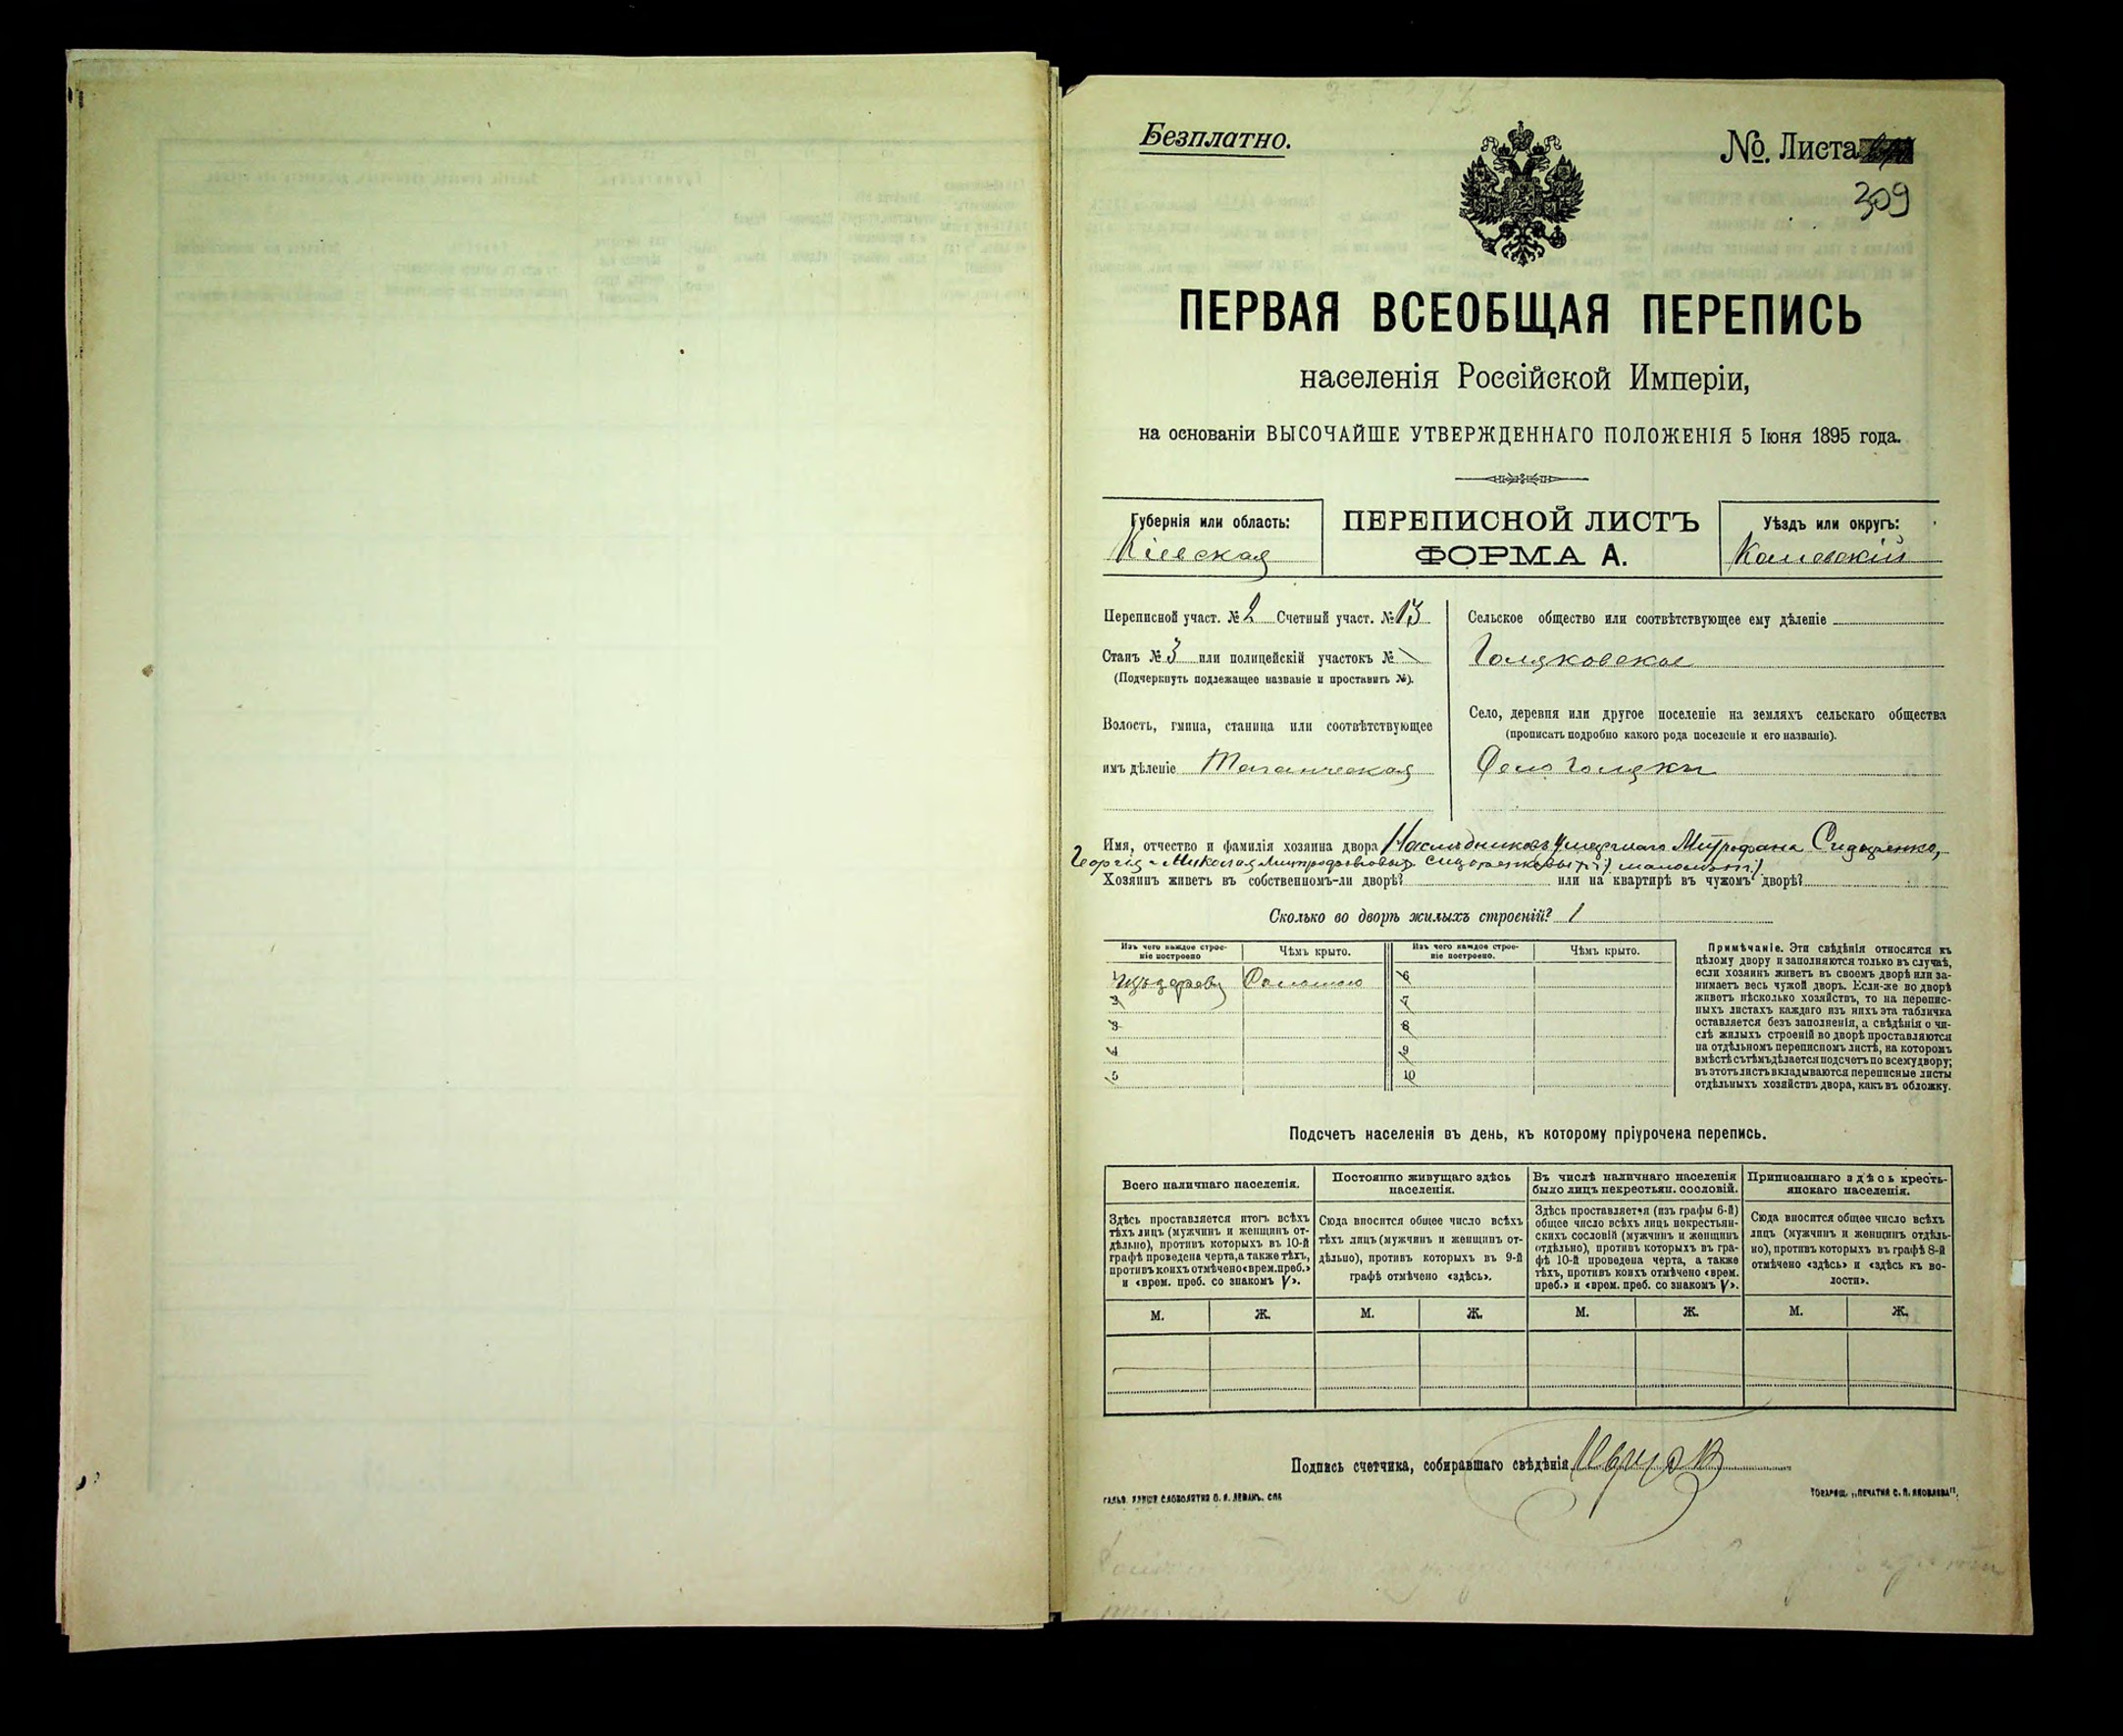 Безплатно.
№. Листа
309
ПЕРВАЯ ВСЕОБЩАЯ ПЕРЕПИСЬ
населенія Россійской Имперіи,
на основаніи ВЫСОЧАЙШЕ УТВЕРЖДЕННАГО ПОЛОЖЕНІЯ 5 Іюня 1895 года.
Губернія или область:
Кіевская
ПЕРЕПИСНОЙ ЛИСТЪ
ФОРМА А.
Уѣздъ или округъ:
Каневскій
Переписной участ. № 2 Счетный участ. № 13
Станъ № 3 или полицейскій участокъ №
(Подчеркнуть подлежащее названіе и проставить №).
Волость, гмина, станица или соотвѣтствующее
имъ дѣленіе Таганческая
Сельское общество или соотвѣтствующее ему дѣленіе
Голяковское
Село, деревня или другое поселеніе на земляхъ сельскаго общества
(прописать подробно какого рода поселеніе и его названіе).
Село Голяки
Имя, отчество и фамилія хозяина двора Наслѣдниковъ умершаго Митрофана Сидоренко,
Георгія и Николая Митрофановыхъ Сидоренковыхъ
Хозяинъ живетъ въ собственномъ-ли дворѣ? или на квартирѣ въ чужомъ дворѣ?
Сколько во дворѣ жилыхъ строеній? 1
Изъ чего каждое строе-
ніе построено
Чѣмъ крыто.
Изъ чего каждое строе-
ніе построено.
Чѣмъ крыто.
Изъ дерева Соломою
2
3
4
5
6
7
8
9
10
Примѣчаніе. Эти свѣдѣнія относятся къ
цѣлому двору и заполняются только въ случаѣ,
если хозяинъ живетъ въ своемъ дворѣ или за-
нимаетъ весь чужой дворъ. Если-же во дворѣ
живетъ нѣсколько хозяйствъ, то на перепис-
ныхъ листахъ каждаго изъ нихъ эта табличка
оставляется безъ заполненія, а свѣдѣнія о чи-
слѣ жилыхъ строеній во дворѣ проставляются
на отдѣльномъ переписномъ листѣ, на которомъ
вмѣстѣ съ тѣмъ дѣлается подсчетъ по всему двору;
въ этотъ листъ вкладываются переписные листы
отдѣльныхъ хозяйствъ двора, какъ въ обложку.
Подсчетъ населенія въ день, къ которому пріурочена перепись.
Всего наличнаго населенія.
Здѣсь проставляется итогъ всѣхъ
тѣхъ лицъ (мужчинъ и женщинъ от-
дѣльно), противъ которыхъ въ 10-й
графѣ проведена черта, а также тѣхъ,
противъ коихъ отмѣчено «врем. преб.»
и «врем. преб. со знакомъ V».
Постоянно живущаго здѣсь
населенія.
Сюда вносится общее число всѣхъ
тѣхъ лицъ (мужчинъ и женщинъ от-
дѣльно), противъ которыхъ въ 9-й
графѣ отмѣчено «здѣсь».
Въ числѣ наличнаго населенія
было лицъ некрестьян. сословій.
Здѣсь проставляется (изъ графы 6-й)
общее число всѣхъ лицъ некрестьян-
скихъ сословій (мужчинъ и женщинъ
отдѣльно), противъ которыхъ въ гра-
фѣ 10-й проведена черта, а также
тѣхъ, противъ коихъ отмѣчено «врем.
преб.» и «врем. преб. со знакомъ V».
Приписаннаго здѣсь кресть-
янскаго населенія.
Сюда вносится общее число всѣхъ
лицъ (мужчинъ и женщинъ отдѣль-
но), противъ которыхъ въ графѣ 8-й
отмѣчено «здѣсь» и «здѣсь къ во-
лости».
М. Ж. М. Ж. М. Ж. М. Ж.
Подпись счетчика, собиравшаго свѣдѣнія
ТОВАРИЩ. „ПЕЧАТНЯ С. П. ЯКОВЛЕВА".